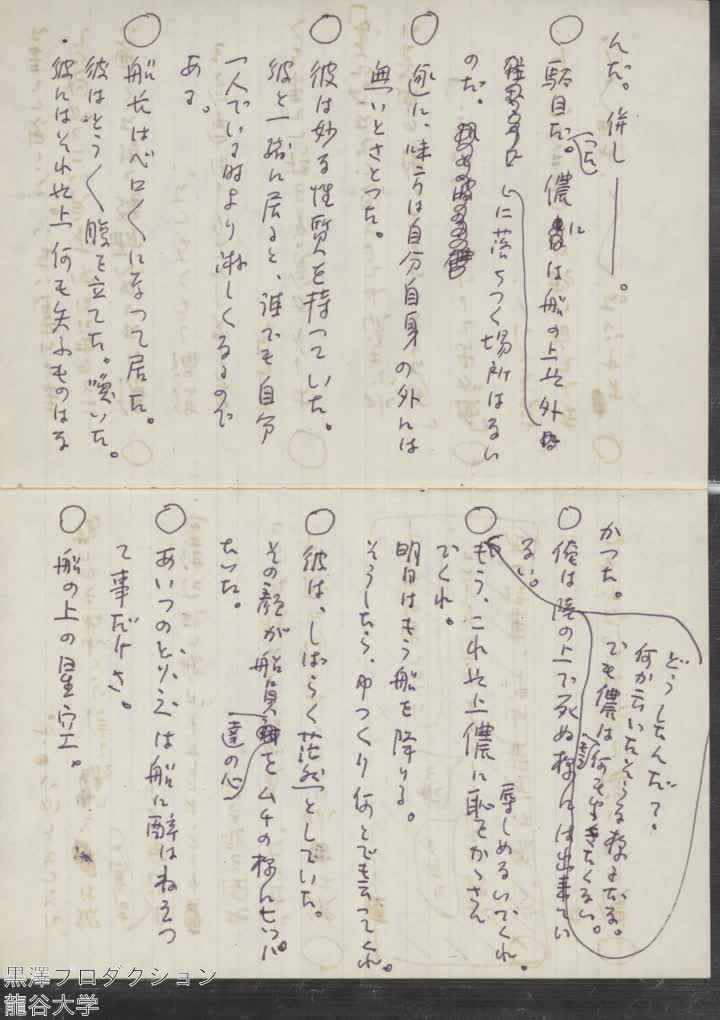 んだ。併し――。
○ 駄目だ。儂には船の上以外
に落ちつく場所はない
のだ。
○ 遂に、味方は自分自身の外には
無いとさとつた。
○ 彼は妙な性質を持つていた。
彼と一緒に居ると、誰でも自分
一人でいる時より淋しくなるので
ある。
○ 船長はベロ〱になつて居た。
彼はとう〱腹を立てた。喚いた。
彼にはそれ以上何も失ふものはな
かつた。
どうしたんだて。
何か云いたそうな様子だな。
でも儂は何も聞きたくない。
○ 俺は陸の上で死ぬ様には出来てい
ない。
○ もう、これ以上儂に恥をかゝさん
でくれ。
辱しめないでくれ。
明日はもう船を降りる。
そうしたら、ゆつくり何とでも云つてくれ。
○ 彼は、しばらく茫然としていた。
その顔が船員達の心をムチの様にせつぱ
たいた。
○ あいつのとりゑは船に酔はねえつ
て事だけさ。
○ 船の上の星空。
黒澤プロダクション
龍谷大学